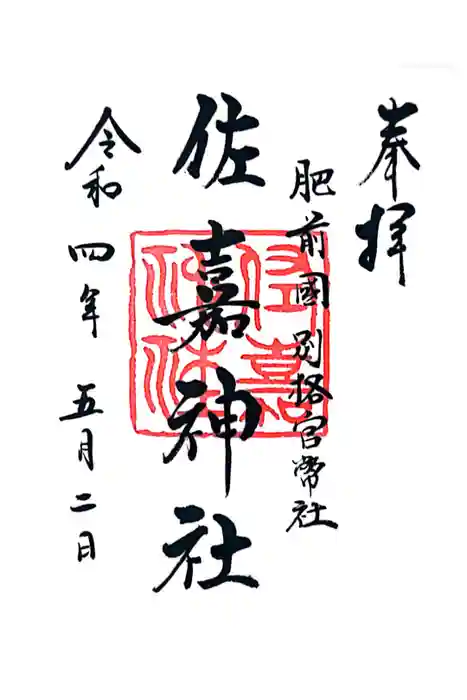 奉拝
肥前國 別格官幣社
佐嘉神社
佐嘉神社
令和四年 五月二日